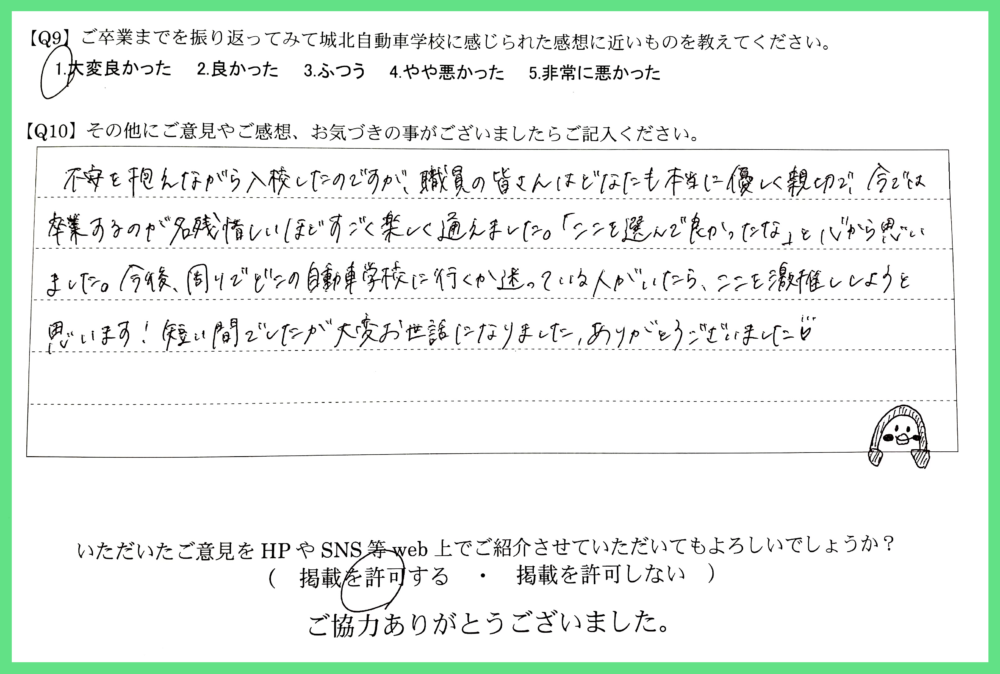 【Q9】ご卒業までを振り返ってみて城北自動車学校に感じられた感想に近いものを教えてください。
1.大変良かった 2.良かった 3.ふつう 4.やや悪かった 5.非常に悪かった
【Q10】その他にご意見やご感想、お気づきの事がございましたらご記入ください。
不安を抱えながら入校したのですが、職員の皆さんはどなたも本当に優しく親切で、今では
卒業するのが名残惜しいほどすごく楽しく通えました。「ここを選んで良かったな」と心から思い
ました。今後、周りでどこの自動車学校に行くか迷っている人がいたら、ここを激推ししようと
思います！短い間でしたが大変お世話になりました、ありがとうございました
いただいたご意見をHPやSNS等web上でご紹介させていただいてもよろしいでしょうか？
（ 掲載を許可する ・ 掲載を許可しない ）
ご協力ありがとうございました。